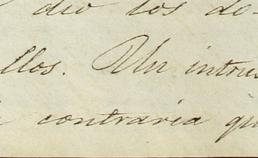 dio dos do-
llos. Un intru
contraria qu